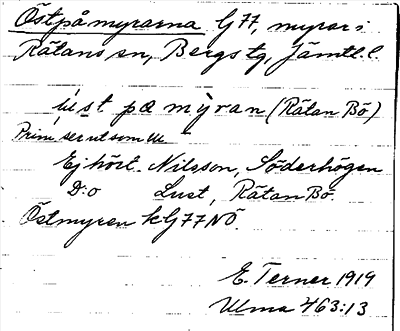 Östpåmyrarna G77, myrar i
Rätans sn, Bergs tg, Jämtl. l.
ùst pœ mỳran (Rätan Bö)
Prim ser ut som u
Ej hört. Nilsson, Söderhögen
D:o Lust, Rätan Bö.
Östmyren kG77NÖ.
E. Terner 1919
Ulma 463:13